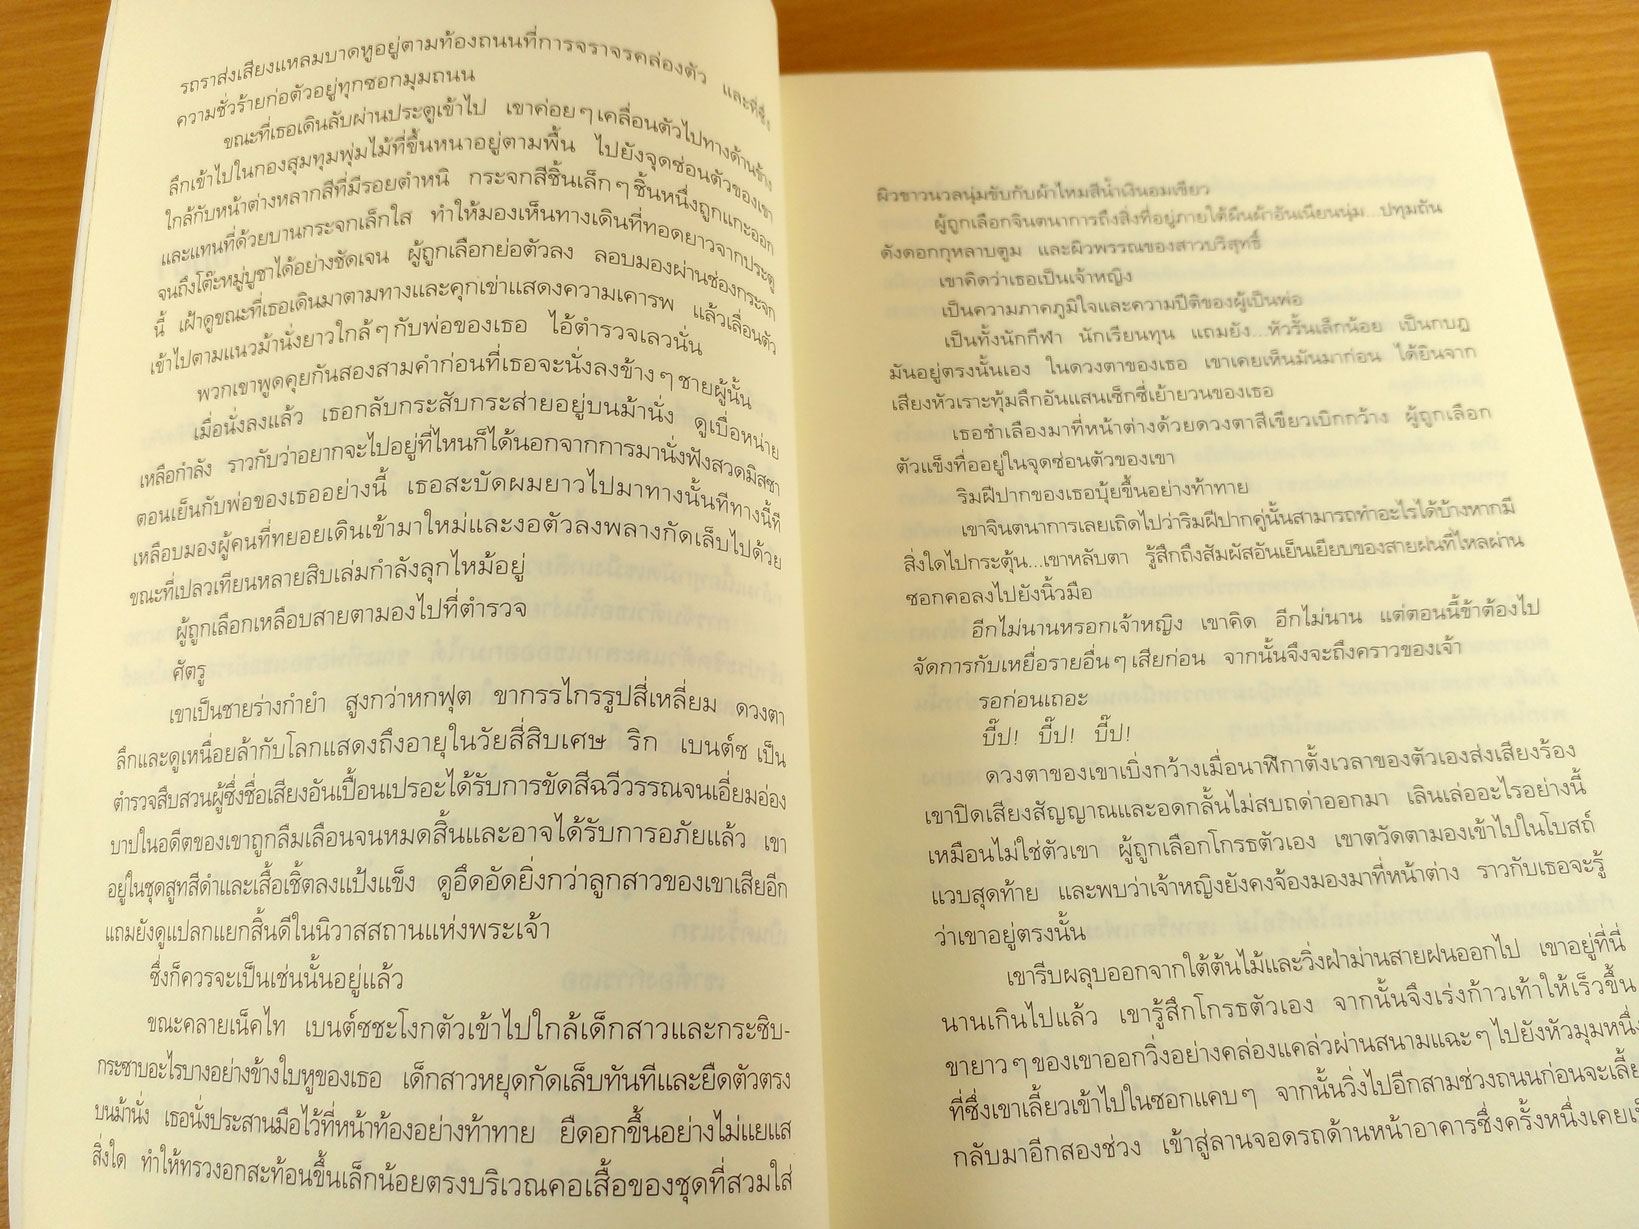 รถราส่งเสียงแหลมบาดหูอยู่ตามท้องถนนที่การจราจรคล่องตัว และที่ซึ่ง
ความชั่วร้ายก่อตัวอยู่ทุกซอกมุมถนน
ขณะที่เธอเดินลับผ่านประตูเข้าไป เขาค่อย ๆ เคลื่อนตัวไปทางด้านข้าง
ลึกเข้าไปในกองสุมทุมพุ่มไม้ที่ขึ้นหนาอยู่ตามพื้น ไปยังจุดซ่อนตัวของเขา
ใกล้กับหน้าต่างหลากสีที่มีรอยตำหนิ กระจกสีชิ้นเล็ก ๆ ชิ้นหนึ่งถูกแกะออก
และแทนที่ด้วยบานกระจกเล็กใส ทำให้มองเห็นทางเดินที่ทอดยาวจากประตู
จนถึงโต๊ะหมู่บูชาได้อย่างชัดเจน ผู้ถูกเลือกย่อตัวลง ลอบมองผ่านช่องกระจก
นี้ เฝ้าดูขณะที่เธอเดินมาตามทางและคุกเข่าแสดงความเคารพ แล้วเลื่อนตัว
เข้าไปตามแนวม้านั่งยาวใกล้ ๆ กับพ่อของเธอ ไอ้ตำรวจเลวนั่น
พวกเขาพูดคุยกันสองสามคำก่อนที่เธอจะนั่งลงข้าง ๆ ชายผู้นั้น
เมื่อนั่งลงแล้ว เธอกลับกระสับกระส่ายอยู่บนม้านั่ง ดูเบื่อหน่าย
เหลือกำลัง ราวกับว่าอยากจะไปอยู่ที่ไหนก็ได้นอกจากการมานั่งฟังสวดมิสซา
ตอนเย็นกับพ่อของเธออย่างนี้ เธอสะบัดผมยาวไปมาทางนั้นทีทางนี้ที
เหลือบมองผู้คนที่ทยอยเดินเข้ามาใหม่และงอตัวลงพลางกัดเล็บไปด้วย
ขณะที่เปลวเทียนหลายสิบเล่มกำลังลุกไหม้อยู่
ผู้ถูกเลือกเหลือบสายตามองไปที่ตำรวจ
ศัตรู
เขาเป็นชายร่างกำยำ สูงกว่าหกฟุต ขากรรไกรรูปสี่เหลี่ยม ดวงตา
ลึกและดูเหนื่อยล้ากับโลกแสดงถึงอายุในวัยสี่สิบเศษ ริก เบนต์ซ เป็น
ตำรวจสืบสวนผู้ซึ่งชื่อเสียงอันเปื้อนเปรอะได้รับการขัดสีฉวีวรรณจนเอี่ยมอ่อง
บาปในอดีตของเขาถูกลืมเลือนจนหมดสิ้นและอาจได้รับการอภัยแล้ว เขา
อยู่ในชุดสูทสีดำและเสื้อเชิ้ตลงแป้งแข็ง ดูอึดอัดยิ่งกว่าลูกสาวของเขาเสียอีก
แถมยังดูแปลกแยกสิ้นดีในนิวาสสถานแห่งพระเจ้า
ซึ่งก็ควรจะเป็นเช่นนั้นอยู่แล้ว
ขณะคลายเน็คไท เบนต์ซชะโงกตัวเข้าไปใกล้เด็กสาวและกระซิบ-
กระซาบอะไรบางอย่างข้างใบหูของเธอ เด็กสาวหยุดกัดเล็บทันทีและยืดตัวตรง
บนม้านั่ง เธอนั่งประสานมือไว้ที่หน้าท้องอย่างท้าทาย ยืดอกขึ้นอย่างไม่แยแส
สิ่งใด ทำให้ทรวงอกสะท้อนขึ้นเล็กน้อยตรงบริเวณคอเสื้อของชุดที่สวมใส่
ผิวขาวนวลนุ่มขับกับผ้าไหมสีน้ำเงินอมเขียว
ผู้ถูกเลือกจินตนาการถึงสิ่งที่อยู่ภายใต้ผืนผ้าอันเนียนนุ่ม...ปทุมถัน
ดังดอกกุหลาบตูม และผิวพรรณของสาวบริสุทธิ์
เขาคิดว่าเธอเป็นเจ้าหญิง
เป็นความภาคภูมิใจและความปีติของผู้เป็นพ่อ
เป็นทั้งนักกีฬา นักเรียนทุน แถมยัง...หัวรั้นเล็กน้อย เป็นกบฏ
มันอยู่ตรงนั้นเอง ในดวงตาของเธอ เขาเคยเห็นมันมาก่อน ได้ยินจาก
เสียงหัวเราะทุ้มลึกอันแสนเซ็กซี่เย้ายวนของเธอ
เธอชำเลืองมาที่หน้าต่างด้วยดวงตาสีเขียวเบิกกว้าง ผู้ถูกเลือก
ตัวแข็งทื่ออยู่ในจุดซ่อนตัวของเขา
ริมฝีปากของเธอบุ้ยขึ้นอย่างท้าทาย
เขาจินตนาการเลยเถิดไปว่าริมฝีปากคู่นั้นสามารถทำอะไรได้บ้างหากมี
สิ่งใดไปกระตุ้น...เขาหลับตา รู้สึกถึงสัมผัสอันเย็นเยียบของสายฝนที่ไหลผ่าน
ซอกคอลงไปยังนิ้วมือ
อีกไม่นานหรอกเจ้าหญิง เขาคิด อีกไม่นาน แต่ตอนนี้ข้าต้องไป
จัดการกับเหยื่อรายอื่น ๆ เสียก่อน จากนั้นจึงจะถึงคราวของเจ้า
รอก่อนเถอะ
บี๊ป! บี๊ป! บี๊ป!
ดวงตาของเขาเบิ่งกว้างเมื่อนาฬิกาตั้งเวลาของตัวเองส่งเสียงร้อง
เขาปิดเสียงสัญญาณและอดกลั้นไม่สบถด่าออกมา เลินเล่ออะไรอย่างนี้
เหมือนไม่ใช่ตัวเขา ผู้ถูกเลือกโกรธตัวเอง เขาตวัดตามองเข้าไปในโบสถ์
แวบสุดท้าย และพบว่าเจ้าหญิงยังคงจ้องมองมาที่หน้าต่าง ราวกับเธอจะรู้
ว่าเขาอยู่ตรงนั้น
เขารีบผลุบออกจากใต้ต้นไม้และวิ่งฝ่าม่านสายฝนออกไป เขาอยู่ที่นี่
นานเกินไปแล้ว เขารู้สึกโกรธตัวเอง จากนั้นจึงเร่งก้าวเท้าให้เร็วขึ้น
ขายาว ๆ ของเขาออกวิ่งอย่างคล่องแคล่วผ่านสนามแฉะ ๆ ไปยังหัวมุมหนึ่ง
ที่ซึ่งเขาเลี้ยวเข้าไปในซอกแคบ ๆ จากนั้นวิ่งไปอีกสามช่วงถนนก่อนจะเลี้ยว
กลับมาอีกสองช่วง เข้าสู่ลานจอดรถด้านหน้าอาคารซึ่งครั้งหนึ่งเคย